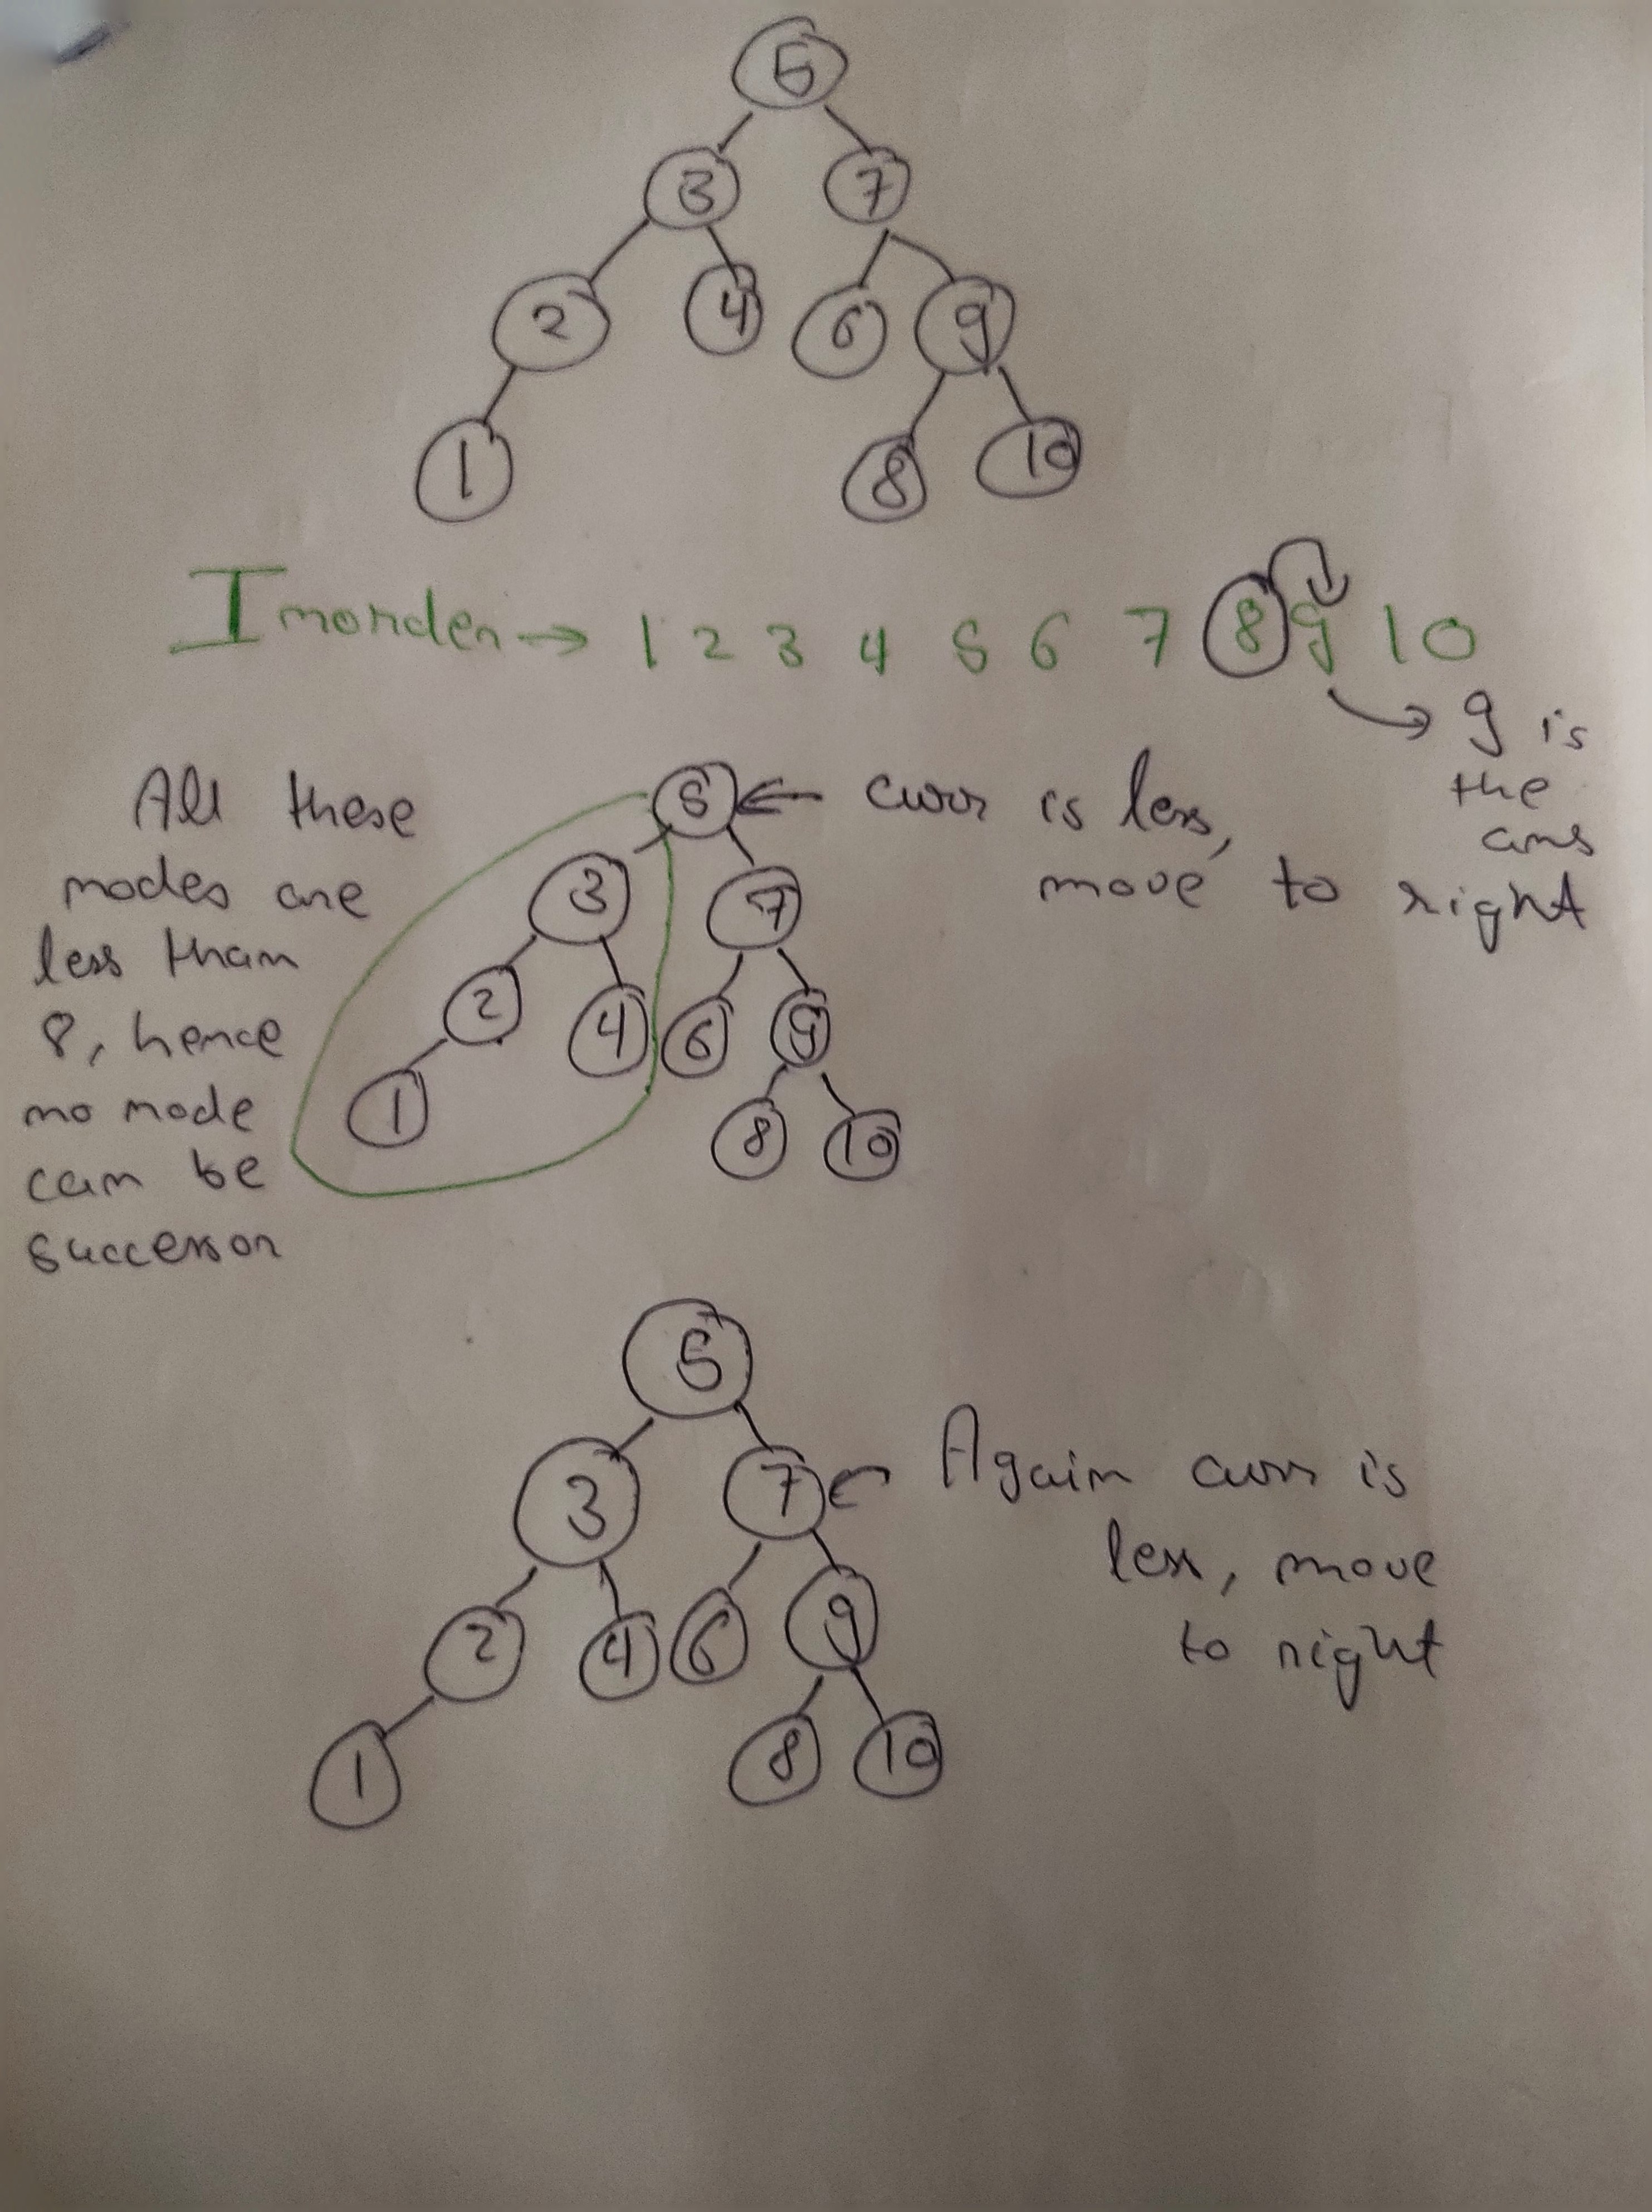 5
3 7
2 4 6 9
1 8 10
Inorder → 1 2 3 4 5 6 7 8 9 10
→ 9 is
the
ans
All these
nodes are
less than
8, hence
no node
can be
successor
5 ← curr is less,
move to right
3 7
2 4 6 9
1 8 10
5
3 7 ← Again curr is
less, move
to right
2 4 6 9
1 8 10